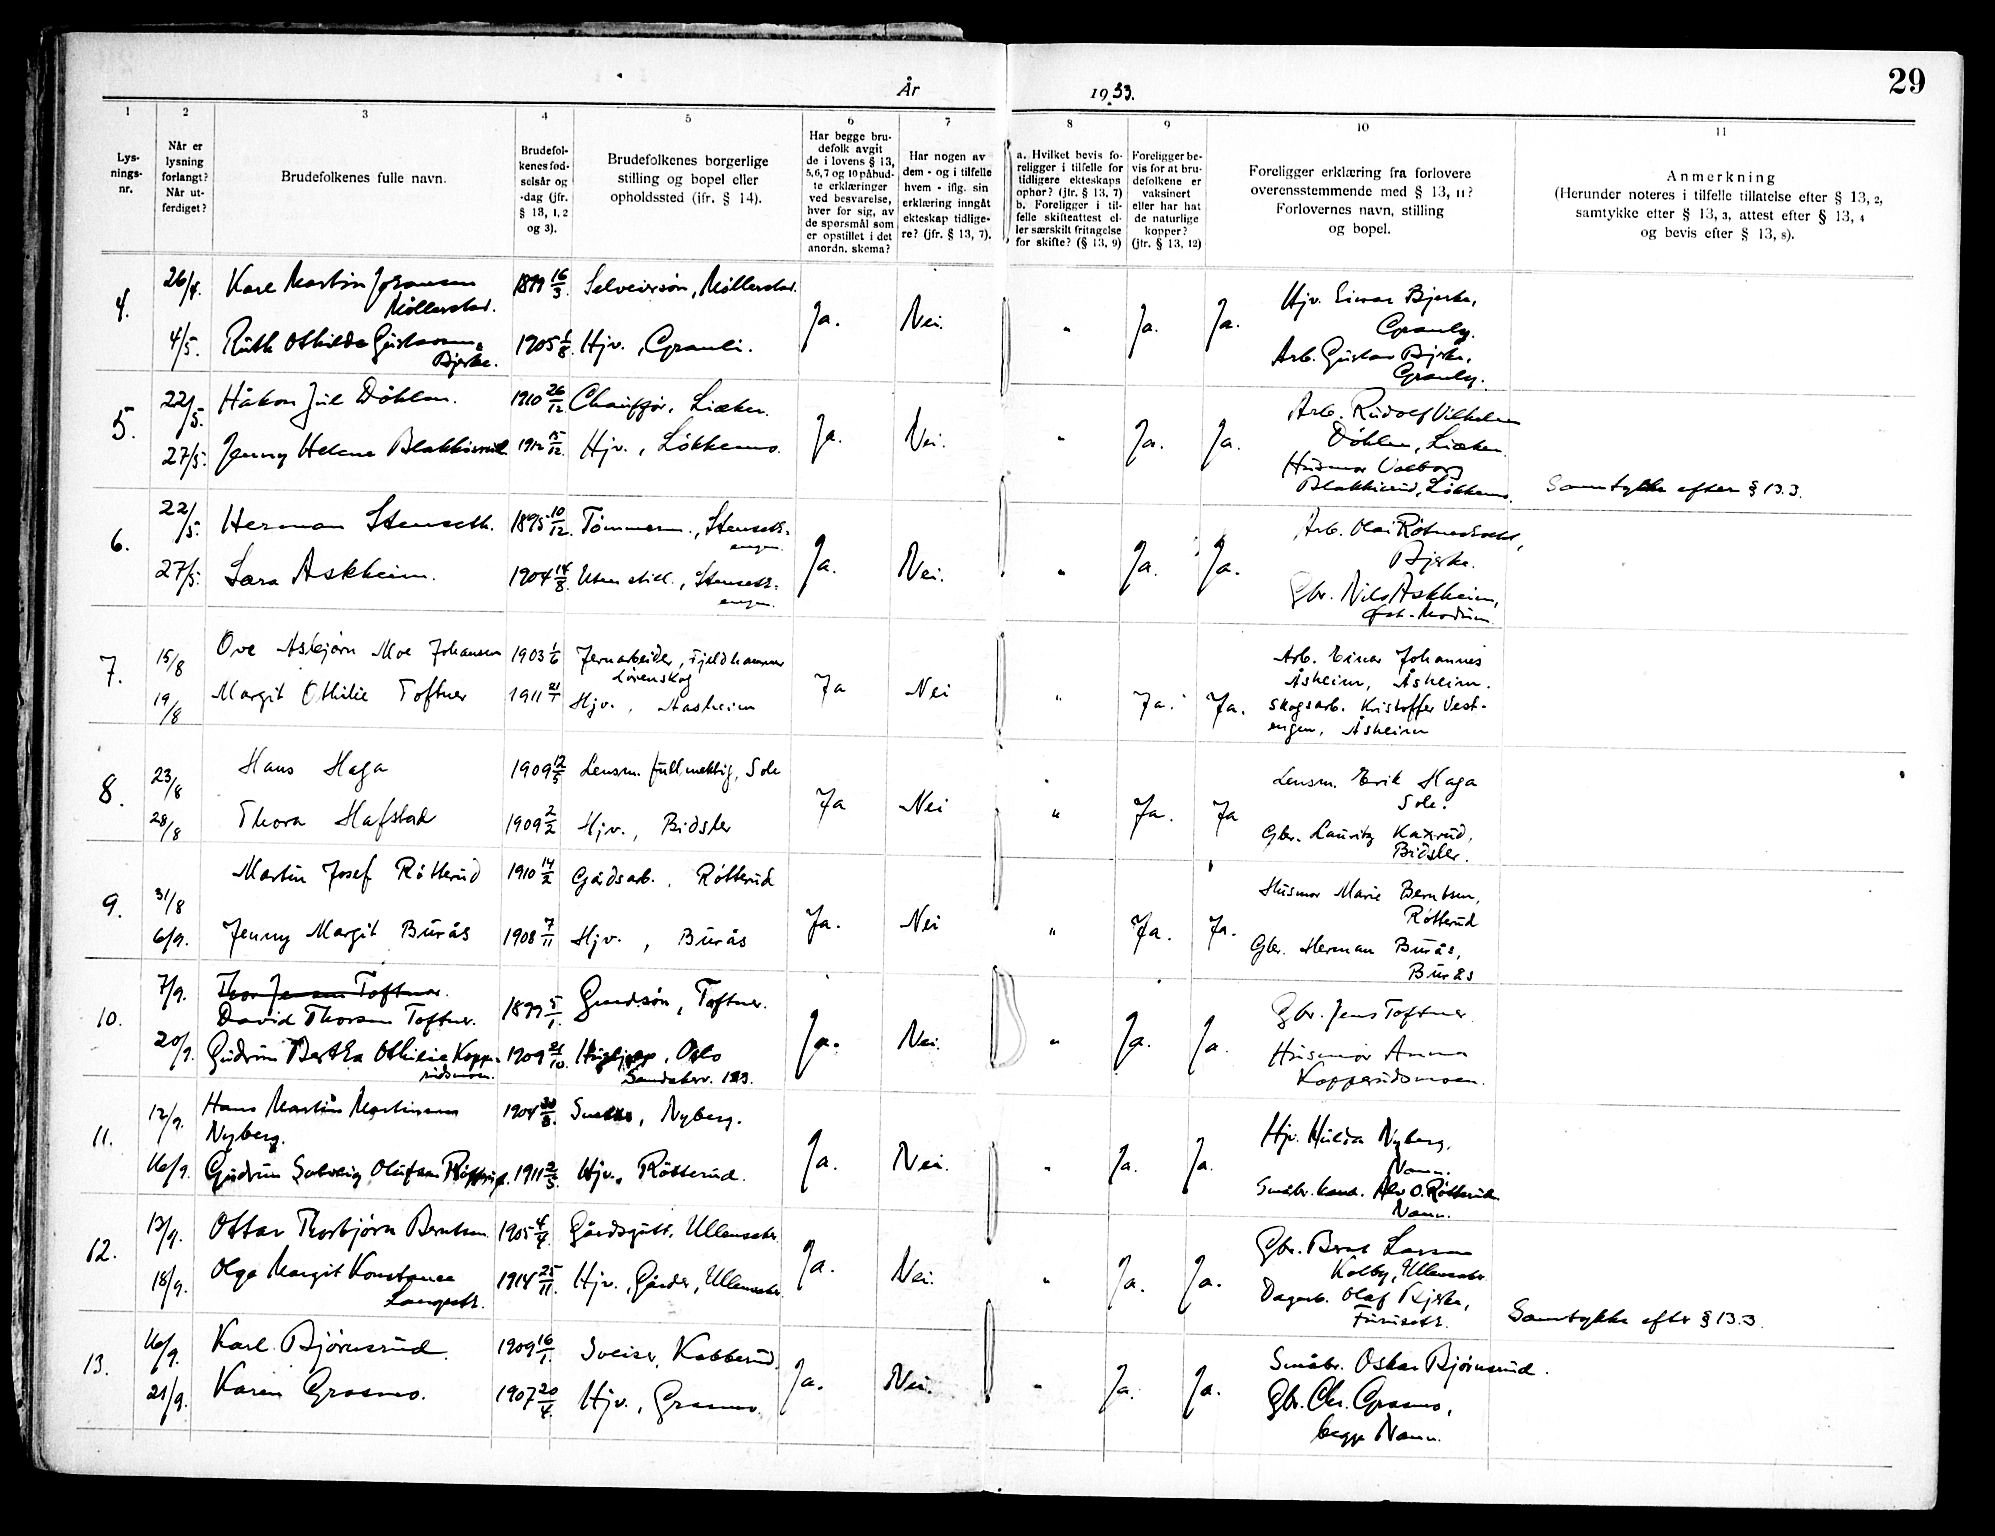 År 1933. 29
1 2 3 4 5 6 7 8 9 10 11
Lys-
nings-
nr.
Når er
lysning
forlangt?
Når ut-
ferdiget?
Brudefolkenes fulle navn.
Brudefol-
kenes fød-
selsår og
-dag (jfr.
§ 13, 1, 2
og 3).
Brudefolkenes borgerlige
stilling og bopel eller
opholdssted (jfr. § 14).
Har begge bru-
defolk avgit
de i lovens § 13,
5, 6, 7 og 10 påbud-
te erklæringer
ved besvarelse,
hver for sig, av
de spørsmål som
er opstillet i det
anordn. skema?
Har nogen av
dem - og i tilfelle
hvem - iflg. sin
erklæring inngåt
ekteskap tidlige-
re? (jfr. § 13, 7).
a. Hvilket bevis fo-
religger i tilfelle for
tidligere ekteskaps
ophør? (jfr. § 13, 7)
b. Foreligger i til-
felle skifteattest el-
ler særskilt fritagelse
for skifte? (§ 13, 9)
Foreligger be-
vis for at bru-
defolkene er
vaksinert
eller har hat
de naturlige
kopper?
(jfr. § 13, 12)
Foreligger erklæring fra forlovere
overensstemmende med § 13, 11?
Forlovernes navn, stilling
og bopel.
Anmerkning
(Herunder noteres i tilfelle tillatelse efter § 13, 2,
samtykke efter § 13, 3, attest efter § 13, 4
og bevis efter § 13, 8).
4. 26/4. Karl Martin Johansen 1899 16/3. Selveiersøn, Møllerstad.
Møllerstad.
4/5. Ruth Othilde Gustavsen 1905 1/8. Hjv., Granli.
Bjerke.
Ja. Nei. " Ja. Ja.
Hjv. Einar Bjerke,
Granly.
Arb. Gustav Bjerke,
Granly.
5. 22/5. Håkon Jul Døhlen. 1910 26/12. Chauffør, Liæker.
27/5. Jenny Helene Blakkisrud 1912 15/12. Hjv., Løkkemo.
Ja. Nei. " Ja. Ja.
Arb. Rudolf Vilhelm
Døhlen, Liæker.
Husmor Valborg
Blakkisrud, Løkkemo. Samtykke efter § 13.3.
6. 22/5. Herman Stenseth. 1895 10/12. Tømmerm., Stenseth-
engen.
27/5. Sara Askheim. 1904 14/8. Uten still., Stenseth-
engen.
Ja. Nei. " Ja. Ja.
Arb. Olai
Bjerke.
Gbr. Nils Askheim,
Modum.
7. 15/8 Ove Asbjørn Moe Johansen 1903 1/6 Jernarbeider, Fjeldhammer
Lørenskog
19/8 Margit Othilie Toftner 1911 21/1 Hjv., Aasheim
Ja Nei " Ja. Ja.
Arb. Einar Johannes
Åsheim, Åsheim.
Skogsarb. Kristoffer Vest-
engen, Åsheim
8. 23/8 Hans Haga 1909 12/5 Lensm. fullmektig, Sole
28/8 Thora Hafstad 1909 2/2 Hjv., Bidsler
Ja Nei " Ja. Ja
Lensm. Erik Haga
Sole.
Gbr. Lauritz Kaxrud,
Bidsler.
9. 31/8 Martin Josef Røtterud 1910 14/2 Gårdsarb., Røtterud
6/9. Jenny Margit Burås 1908 7/11 Hjv., Burås
Ja. Nei " Ja. Ja.
Husmor Marie Berntsen,
Røtterud
Gbr. Herman Burås,
Burås
10. 7/9. Thor Jensen Toftner.
David Thorsen Toftner. 1899 5/1. Grdsøn, Toftner.
20/9. Gudrun Bertha Othilie Kopp- 1909 21/10. Oslo
rudsmoen. Sandakerv.
Ja. Nei. " Ja. Ja.
Gbr. Jens Toftner
Husmor Anna
Kopperudsmoen.
11. 12/9. Hans Martin Martinsen 1904 Nyberg.
Nyberg.
16/9. Gudrun Solveig Olufsen 1911 2/3. Hjv., Røtterud.
Ja. Nei. " Ja. Ja.
Hjv. Hulda Nyberg.
Nann.
Småbr. Alv O. Røtterud
Nann.
12. 13/9. Ottar Thorbjørn Berntsen 1905 4/4. Gårdsgutt, Ullensaker.
18/9. Olga Margit Konstance 1914 25/11. Hjv., Garder, Ullensaker.
Langseth.
Ja. Nei. " Ja. Ja.
Gbr. Bernt Larsen
Kolby, Ullensaker
Dagarb. Olaf Bjerke,
Furuseth. Samtykke efter § 13.3.
13. 16/9. Karl Bjørnsrud. 1909 16/1. Sveiser, Kabberud.
21/9. Karen Grasmo. 1907 20/4. Hjv., Grasmo.
Ja. Nei. " Ja. Ja.
Småbr. Oskar Bjørnsrud.
Gbr. Chr. Grasmo,
begge Nann.